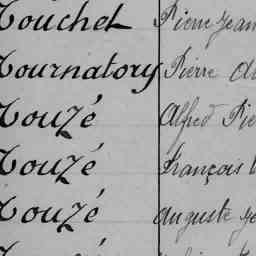 Touchet Pierre Jean
Tournatory Pierre
Touzé Alfred
Touzé François
Touzé Auguste